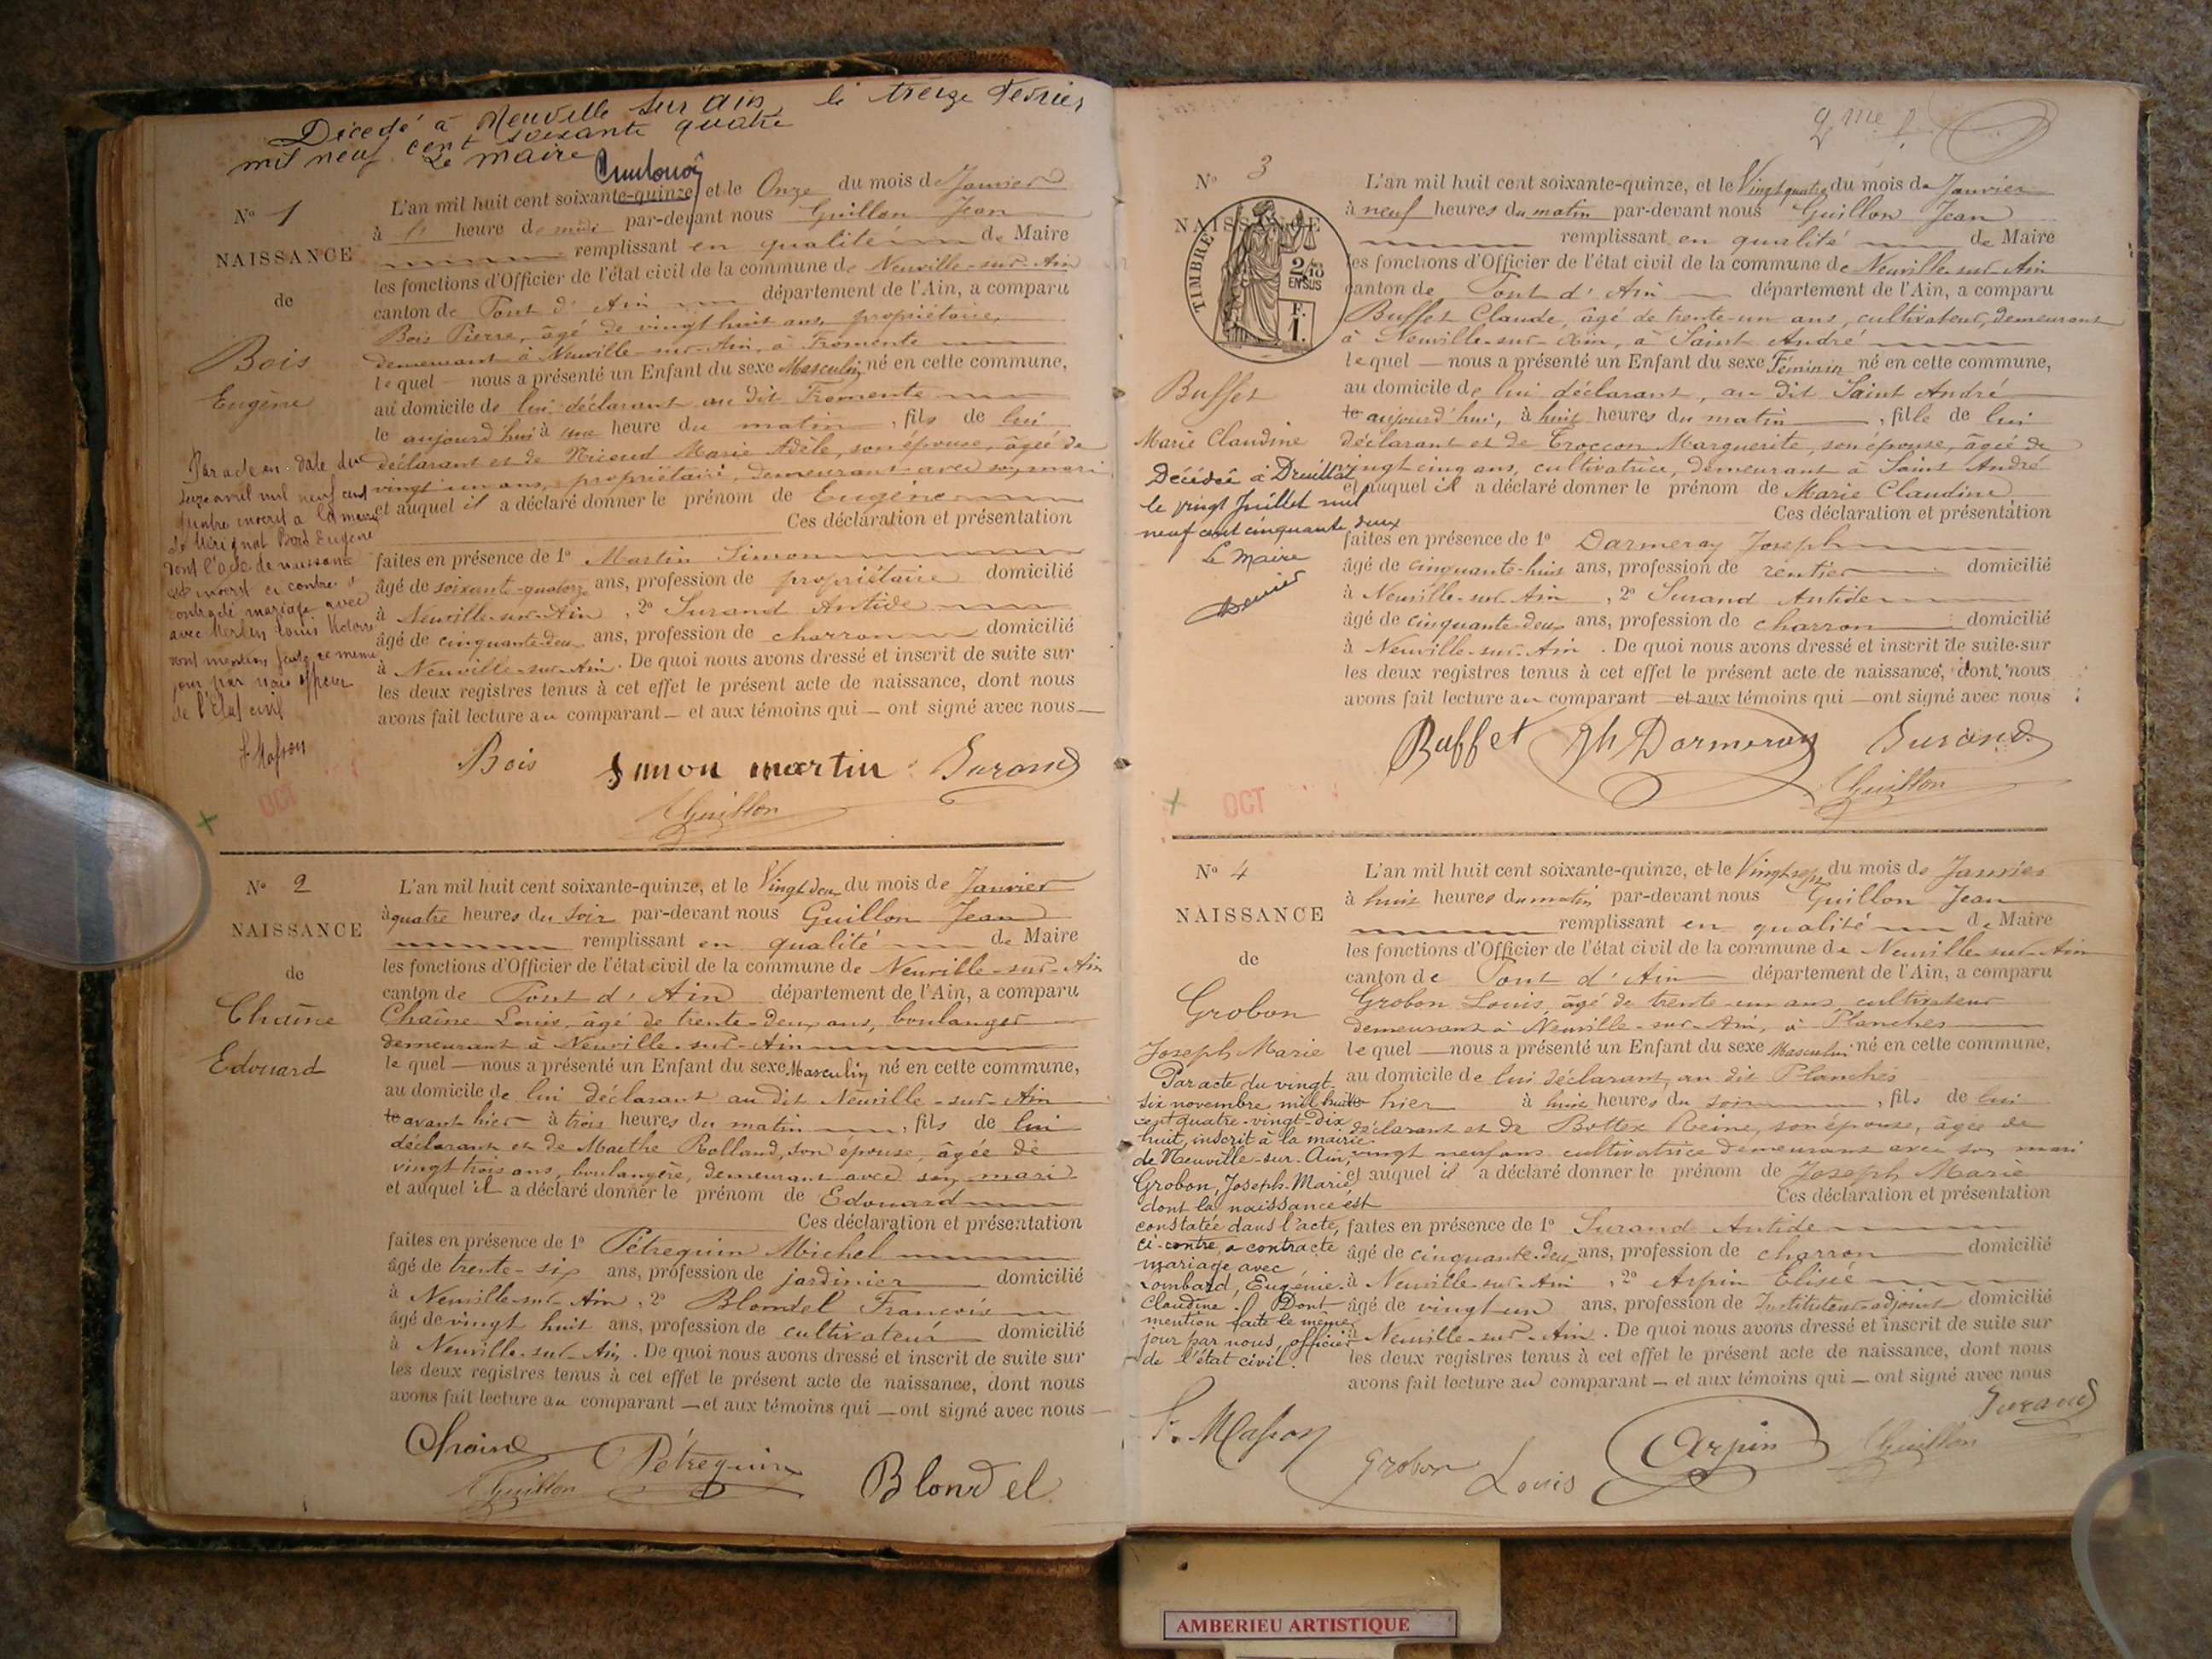 Décedé à Neuville sur Ain le treize Fevrier
mil neuf cent soixante quatre
Le Maire
N° 1
NAISSANCE
de
Bois
Eugène
L'an mil huit cent soixante-quinze, et le Onze du mois de Janvier
à heure de par-devant nous Guillon Jean
remplissant en qualité de Maire
les fonctions d'Officier de l'état civil de la commune de Neuville-sur-Ain
canton de Pont d'Ain département de l'Ain, a comparu
Bois Pierre, âgé de vingt huit ans, propriétaire,
demeurant à Neuville-sur-Ain, à Fromente
lequel nous a présenté un Enfant du sexe Masculin né en cette commune,
au domicile de lui déclarant au dit Fromente
le aujourd'hui à une heure du matin, fils de lui
déclarant et de Nicoud Marie Adèle, son épouse, âgée de
vingt un ans, propriétaire, demeurant avec son mari
et auquel il a déclaré donner le prénom de Eugène
Ces déclaration et présentation
faites en présence de 1° Martin Simon
âgé de soixante-quatorze ans, profession de propriétaire domicilié
à Neuville-sur-Ain, 2° Durand Antide
âgé de cinquante-deux ans, profession de charron domicilié
à Neuville-sur-Ain. De quoi nous avons dressé et inscrit de suite sur
les deux registres tenus à cet effet le présent acte de naissance, dont nous
avons fait lecture au comparant — et aux témoins qui — ont signé avec nous
Par acte en date du
seize avril mil neuf cent
inscrit à la mairie
de Mérignat Bois Eugène
dont l'acte de naissance
est inscrit ci contre a
contracté mariage avec
avec Merlin Louis Victoire
dont mention faite ce même
jour par nous officier
de l'Etat civil
Bois Simon martin Durand
Guillon
OCT
N° 2
NAISSANCE
de
Chaîne
Edouard
L'an mil huit cent soixante-quinze, et le Vingt deux du mois de Janvier
à quatre heures du soir par-devant nous Guillon Jean
remplissant en qualité de Maire
les fonctions d'Officier de l'état civil de la commune de Neuville-sur-Ain
canton de Pont d'Ain département de l'Ain, a comparu
Chaîne Louis, âgé de trente-deux ans, boulanger
demeurant à Neuville-sur-Ain
lequel — nous a présenté un Enfant du sexe Masculin né en cette commune,
au domicile de lui déclarant au dit Neuville-sur-Ain
le avant hier à trois heures du matin, fils de lui
déclarant et de Marthe Rolland, son épouse, âgée de
vingt trois ans, boulangère, demeurant avec son mari
et auquel il a déclaré donner le prénom de Edouard
Ces déclaration et présentation
faites en présence de 1° Pétrequin Michel
âgé de trente-six ans, profession de jardinier domicilié
à Neuville-sur-Ain, 2° Blondel François
âgé de vingt huit ans, profession de cultivateur domicilié
à Neuville-sur-Ain. De quoi nous avons dressé et inscrit de suite sur
les deux registres tenus à cet effet le présent acte de naissance, dont nous
avons fait lecture au comparant — et aux témoins qui — ont signé avec nous
Chaine Pétrequin Blondel
Guillon
2me f.
N° 3
NAISSANCE
TIMBRE
2/10
EN SUS
F.
1.
Buffet
Marie Claudine
L'an mil huit cent soixante-quinze, et le Vingt quatre du mois de Janvier
à neuf heures du matin par-devant nous Guillon Jean
remplissant en qualité de Maire
les fonctions d'Officier de l'état civil de la commune de Neuville-sur-Ain
canton de Pont d'Ain département de l'Ain, a comparu
Buffet Claude, âgé de trente-un ans, cultivateur, demeurant
à Neuville-sur-Ain, à Saint André
lequel — nous a présenté un Enfant du sexe Féminin né en cette commune,
au domicile de lui déclarant, au dit Saint André
le aujourd'hui, à huit heures du matin, fille de lui
déclarant et de Troccon Marguerite, son épouse, âgée de
vingt cinq ans, cultivatrice, demeurant à Saint André
et auquel il a déclaré donner le prénom de Marie Claudine
Ces déclaration et présentation
faites en présence de 1° Darmeray Joseph
âgé de cinquante-huit ans, profession de rentier domicilié
à Neuville-sur-Ain, 2° Durand Antide
âgé de cinquante-deux ans, profession de charron domicilié
à Neuville-sur-Ain. De quoi nous avons dressé et inscrit de suite sur
les deux registres tenus à cet effet le présent acte de naissance, dont nous
avons fait lecture au comparant — et aux témoins qui — ont signé avec nous
Décédée à Druillat
le vingt Juillet mil
neuf cent cinquante deux
Le Maire
Buffet Jh Darmeray Durand
Guillon
OCT
N° 4
NAISSANCE
de
Grobon
Joseph Marie
L'an mil huit cent soixante-quinze, et le Vingt sept du mois de Janvier
à huit heures du matin par-devant nous Guillon Jean
remplissant en qualité de Maire
les fonctions d'Officier de l'état civil de la commune de Neuville-sur-Ain
canton de Pont d'Ain département de l'Ain, a comparu
Grobon Louis, âgé de trente-un ans, cultivateur
demeurant à Neuville-sur-Ain, à Planches
lequel — nous a présenté un Enfant du sexe Masculin né en cette commune,
au domicile de lui déclarant, au dit Planches
le hier à huit heures du soir, fils de lui
déclarant et de Bottex Reine, son épouse, âgée de
vingt neuf ans cultivatrice demeurant avec son mari
et auquel il a déclaré donner le prénom de Joseph Marie
Ces déclaration et présentation
faites en présence de 1° Durand Antide
âgé de cinquante-deux ans, profession de charron domicilié
à Neuville-sur-Ain, 2° Arpin Elisée
âgé de vingt un ans, profession de Instituteur-adjoint domicilié
à Neuville-sur-Ain. De quoi nous avons dressé et inscrit de suite sur
les deux registres tenus à cet effet le présent acte de naissance, dont nous
avons fait lecture au comparant — et aux témoins qui — ont signé avec nous
Par acte du vingt
six novembre mil huit
cent quatre-vingt-dix
huit, inscrit à la mairie
de Neuville-sur-Ain,
Grobon, Joseph-Marie
dont la naissance est
constatée dans l'acte,
ci-contre, a contracté
mariage avec
Lombard, Eugénie
Claudine. Dont
mention faite le même
jour par nous, officier
de l'état civil.
Grobon Louis Arpin Guillon Durand
AMBERIEU ARTISTIQUE